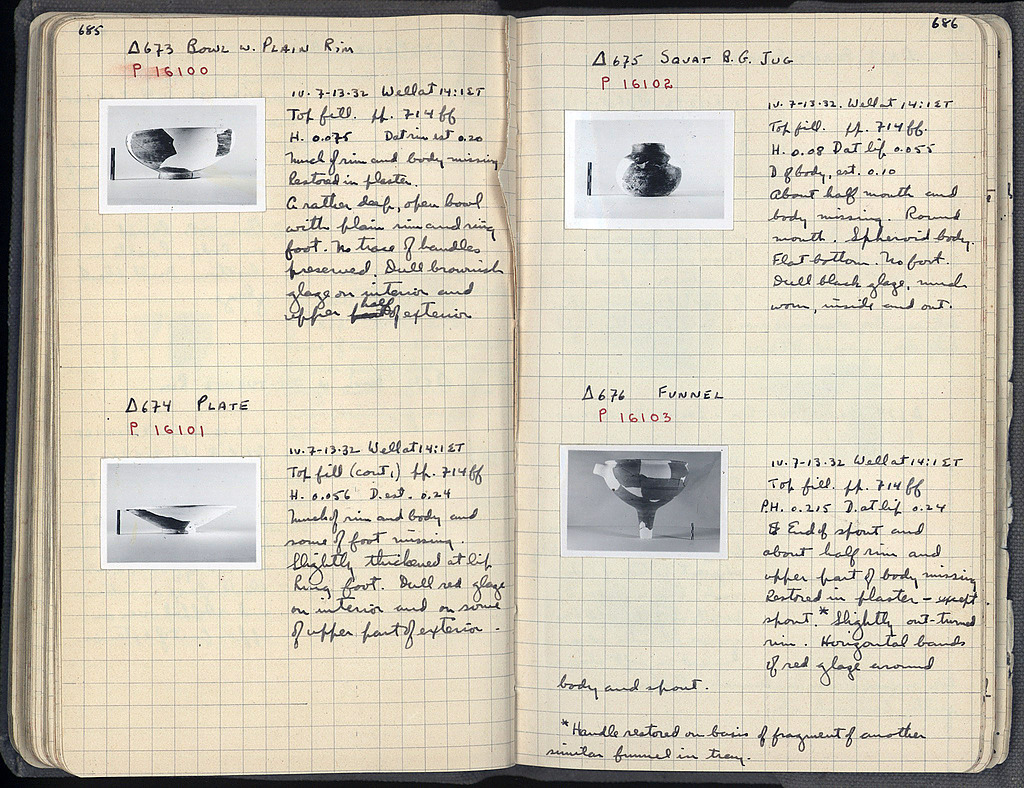 685
Δ673 Bowl w. Plain Rim
P 16100
IV. 7-13-32 Well at 14:1ΣΤ
Top fill. pp. 714 ff
H. 0.075 D at rim est 0.20
Much of rim and body missing
Restored in plaster.
A rather deep, open bowl
with plain rim and ring
foot. No trace of handles
preserved. Dull brownish
glaze on interior and
upper half of exterior
Δ674 Plate
P 16101
IV. 7-13-32 Well at 14:1ΣΤ
Top fill (cont.) pp. 714 ff
H. 0.056 D. est. 0.24
Much of rim and body and
some of foot missing.
Slightly thickened at lip
Ring foot. Dull red glaze
on interior and on some
of upper part of exterior.
686
Δ675 Squat B.G. Jug
P 16102
IV. 7-13-32. Well at 14:1ΣΤ
Top fill. pp. 714 ff.
H. 0.08 D at lip 0.055
D of body, est. 0.10
About half mouth and
body missing. Round
mouth. Spheroid body.
Flat bottom. No foot.
Dull black glaze, much
worn, inside and out.
Δ676 Funnel
P 16103
IV. 7-13-32 Well at 14:1ΣΤ
Top fill. pp. 714 ff
P.H. 0.215 D. at lip 0.24
End of spout and
about half rim and
upper part of body missing
Restored in plaster – except
spout.* Slightly out-turned
rim. Horizontal bands
of red glaze around
body and spout.
*Handle restored on basis of fragment of another
similar funnel in tray.